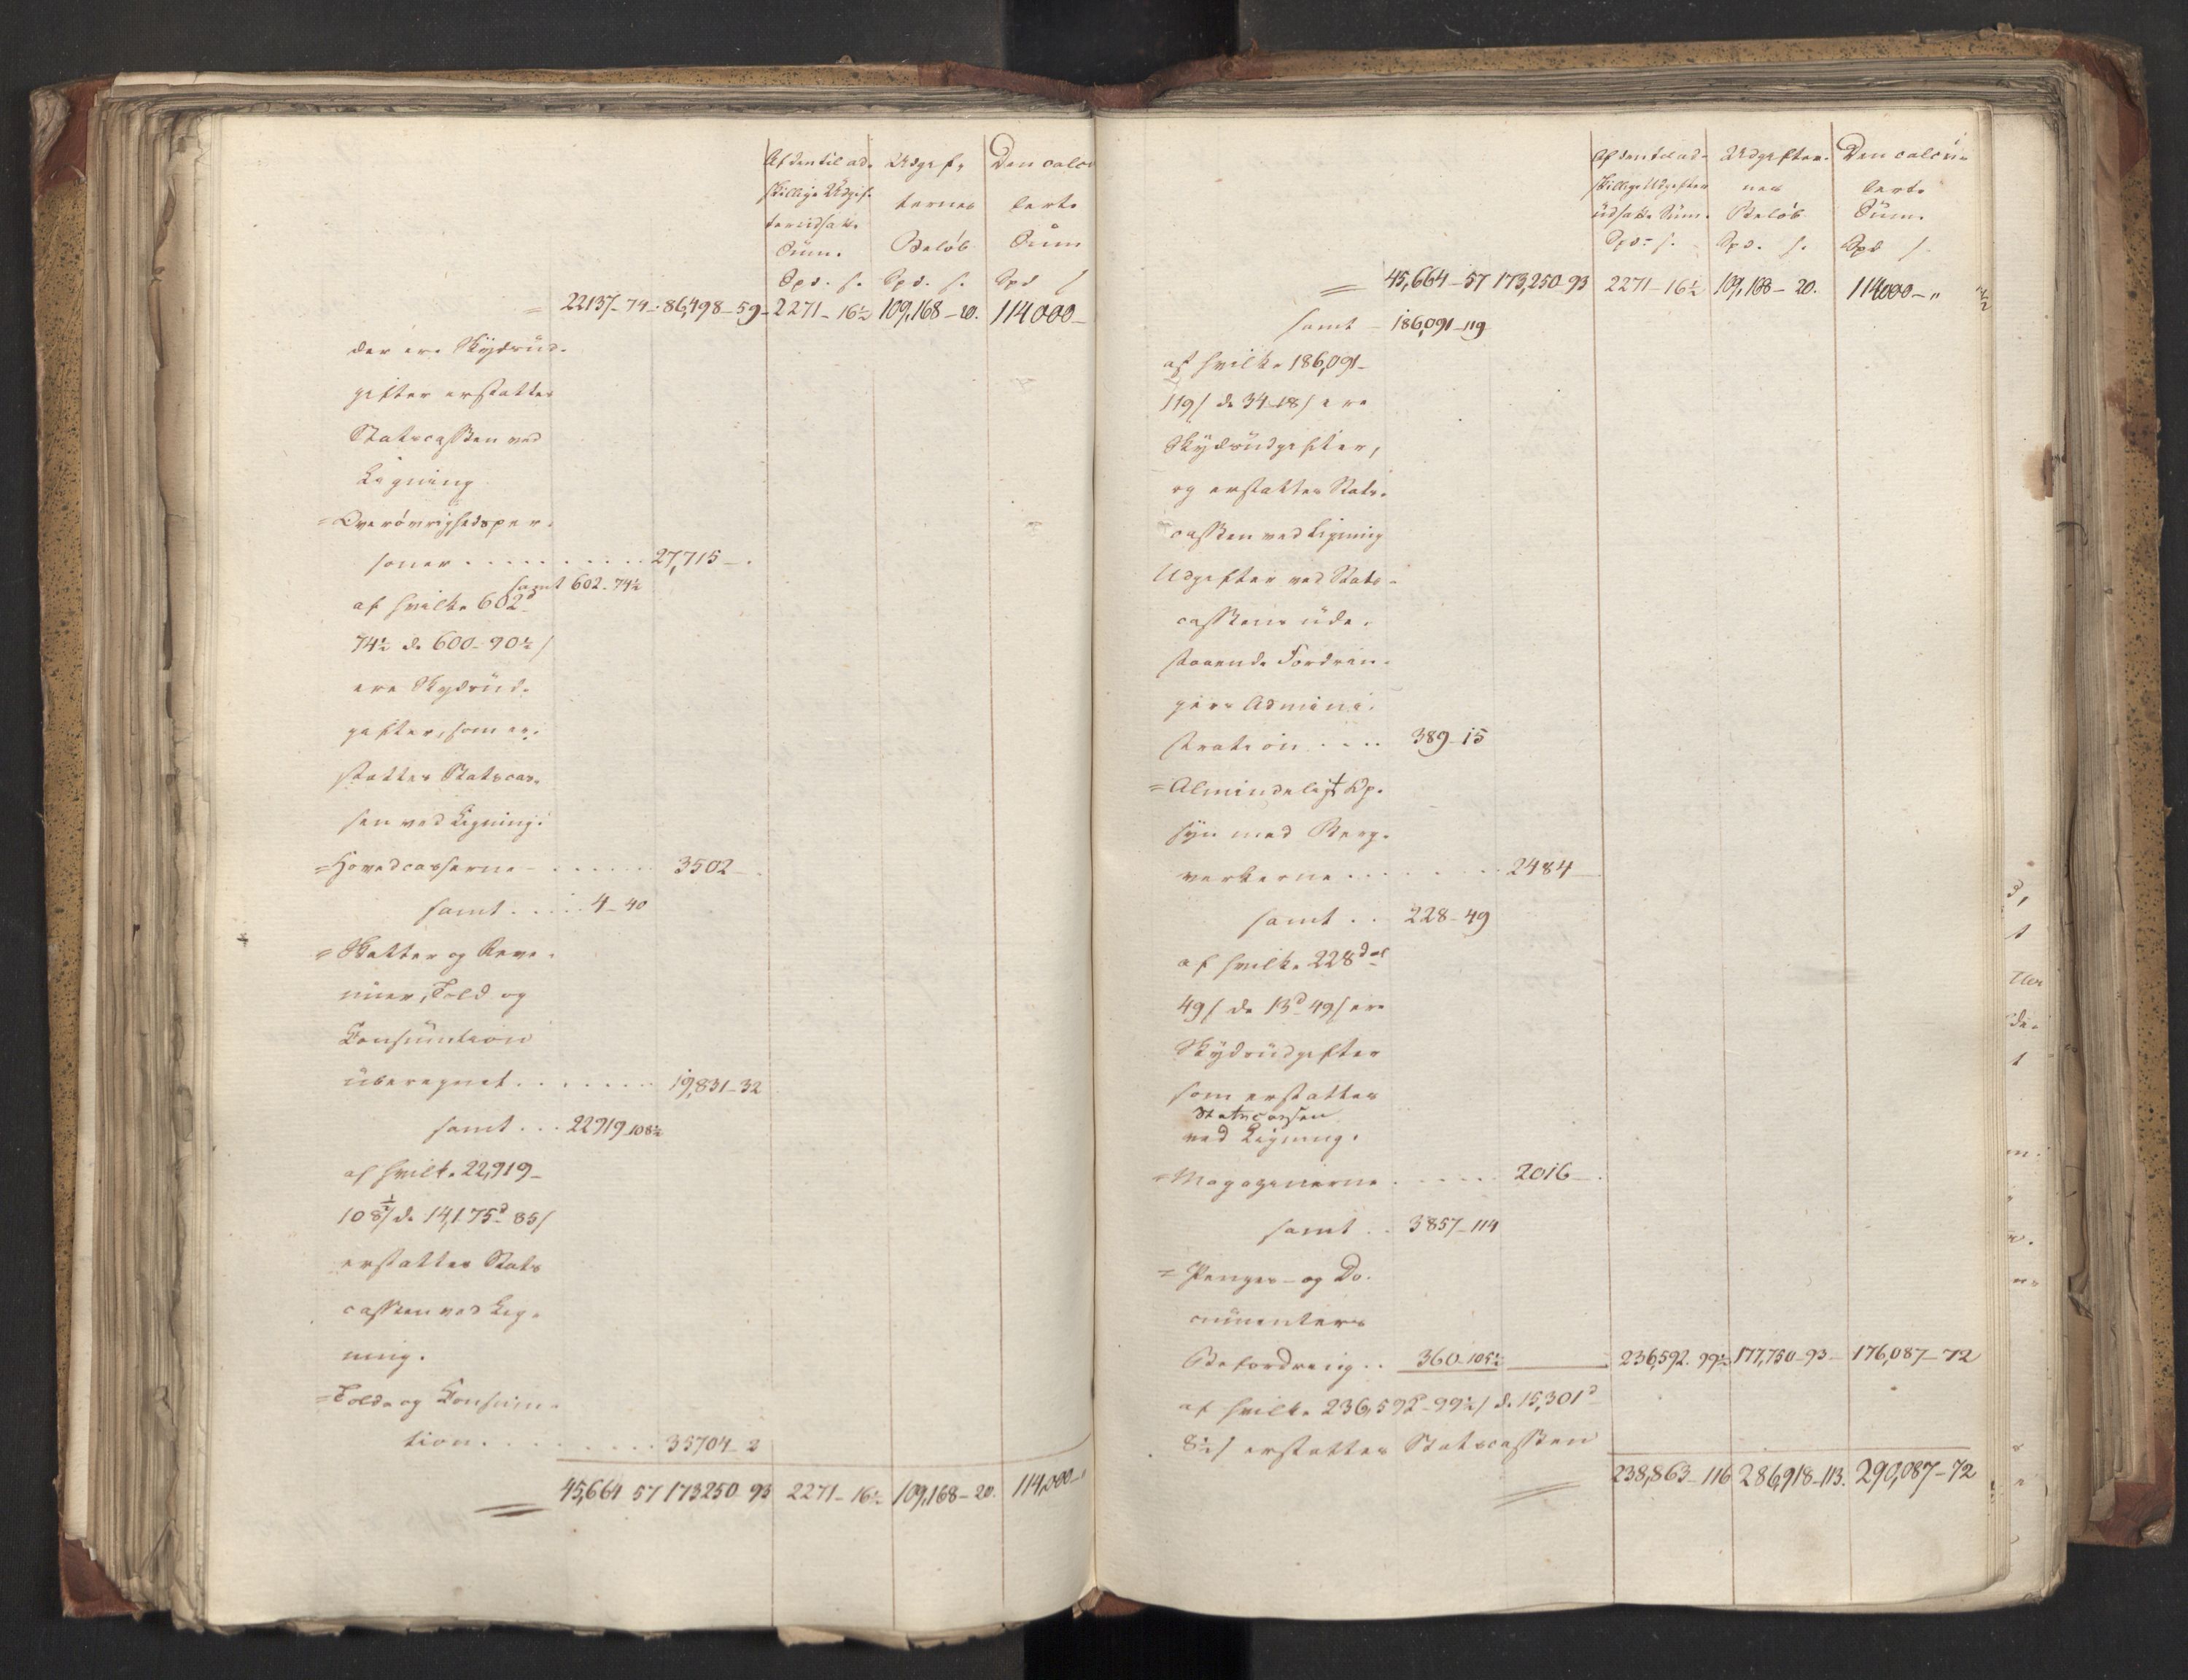 Af den til ad-
skillige Udgif-
ter udsatte
Sum.
Spd. s.
Udgif-
ternes
Beløb
Spd. s.
Den calcu
lerte
Sum
Spd s
= 22137-74- 86,498-59- 2271-16½ 109,168-20. 114000-
der ere Skydsud-
gifter erstattes
Statscassen ved
Ligning
= Overøvrighedsper-
soner . . . . . . . . . 27,715-.
samt 602-74½
af hvilke 602d
74½ de 600-90½ s
ere Skydsud-
gifter, som er-
stattes Statscas-
sen ved Ligning.
= Hovedcasserne - . . . . . . 3502-.
samt . . . . . 4-40
= Skatter og Reve-
nuer, Told og
Consumtion
uberegnet . . . . . . . 19,831-32
samt . . . 22919-108½
af hvilke 22,919-
108½ s de 14,175d 85 s
erstattes Stats
cassen ved Lig-
ning.
= Told- og Consum-
tion . . . . . . . . . 35704-2
= 45,664 57 173250 93 2271-16½ 109,168-20. 114,000-"
Af den til ad-
skillige Udgifter
udsatte Sum.
Spd. s.
Udgifter-
nes
Beløb
Spd. s.
Den calcu-
lerte
Sum.
Spd s.
= 45,664-57 173,250-93 2271-16½ 109,168-20. 114000-"
samt - 186,091-119
af hvilke 186,091-
119 s de 34-18 s ere
Skydsudgifter,
og erstattes Stats-
cassen ved Ligning
Udgifter ved Stats-
cassens ude-
staaende Fordrin-
gers Admini-
stration . . . . 389-15
= Almindeligt Op-
syn med Berg-
verkerne . . . . . . . . 2484-
samt . . 228-49
af hvilke 228 del
49 s de 13d 49 s ere
Skydsudgifter
som erstattes
Statscassen
ved Ligning.
= Magazinerne . . . . . . 2016-.
samt . . 3857-114
= Penges- og Do-
cumenters
Befordring . . 360-105½ 236,592. 99½ 177,750-93- 176,087-72
af hvilke 236,592-99½ s de 15,301d
8½ s erstattes Statscassen
= 238,863-116 286,918-113. 290,087-72